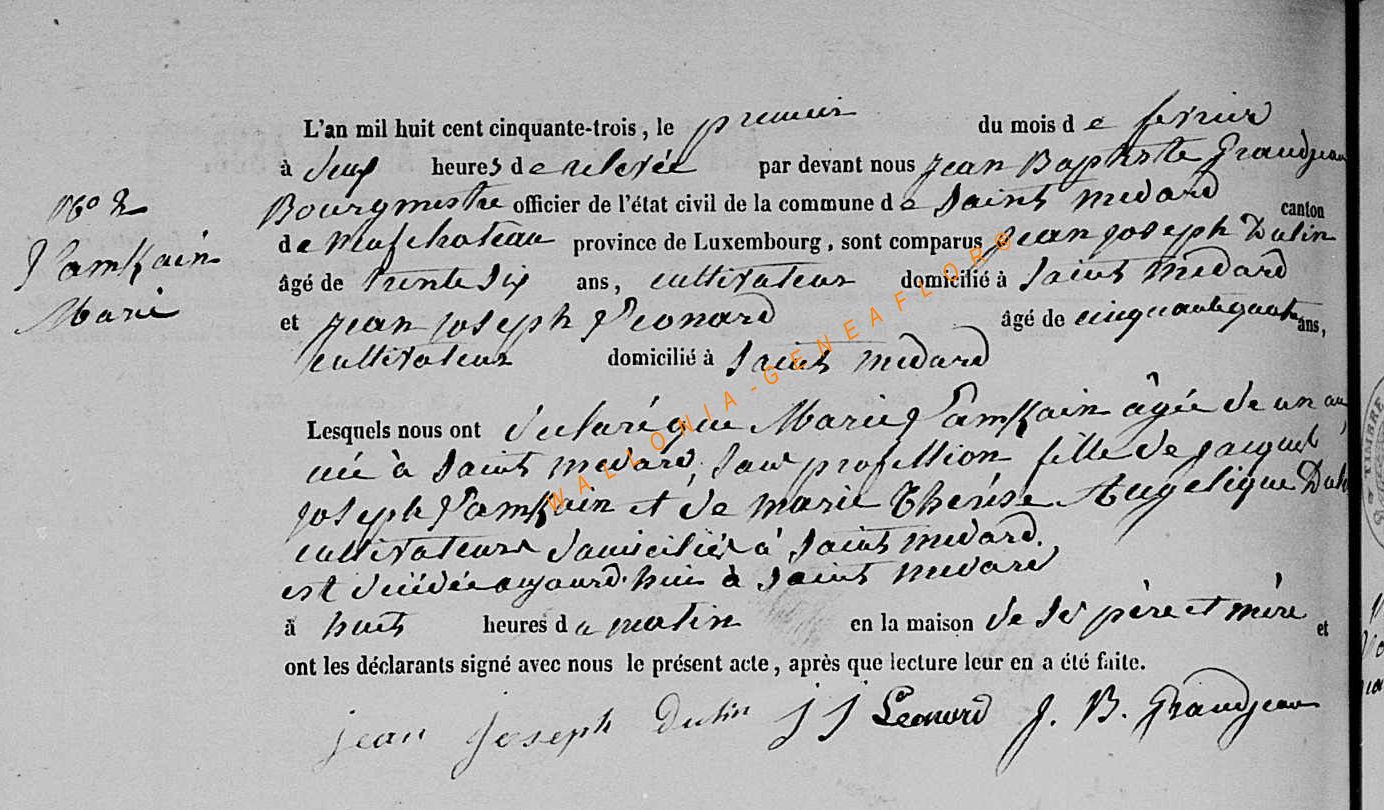 L'an mil huit cent cinquante-trois, le premier du mois de février
à deux heures de relevée par devant nous Jean Baptiste Grandjean
Bourgmestre officier de l'état civil de la commune de Saint médard canton
de Neufchateau province de Luxembourg, sont comparus Jean Joseph Dulin
âgé de trente six ans, cultivateur domicilié à Saint médard
et Jean Joseph Léonard âgé de cinquante quatre ans,
cultivateur domicilié à Saint médard
N° 2
Marie
Lesquels nous ont déclaré que Marie âgée de un an
née à Saint médard, sans profession fille de Jacques
Joseph et de marie Thérèse Angelique
cultivateurs domiciliés à Saint médard.
est décédée aujourd'hui à Saint médard
à huit heures du matin en la maison de ses père et mère et
ont les déclarants signé avec nous le présent acte, après que lecture leur en a été faite.
jean joseph Dulin J J Leonard J. B. Grandjean
WALLONIA-GENEAFLORE